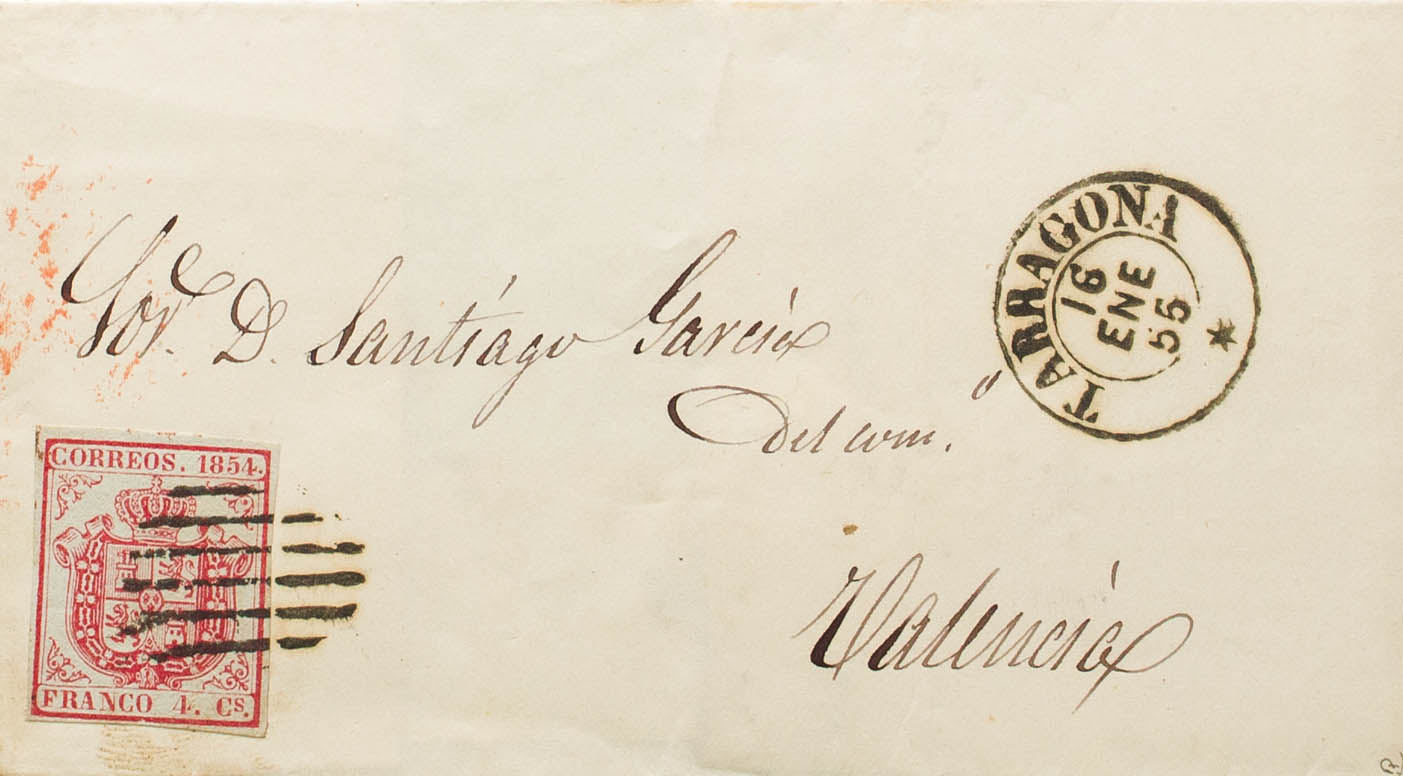 TARRAGONA
16
ENE
55
Sor. D. Santiago Garcia
del com.º
Valencia
CORREOS. 1854.
FRANCO 4. Cs.